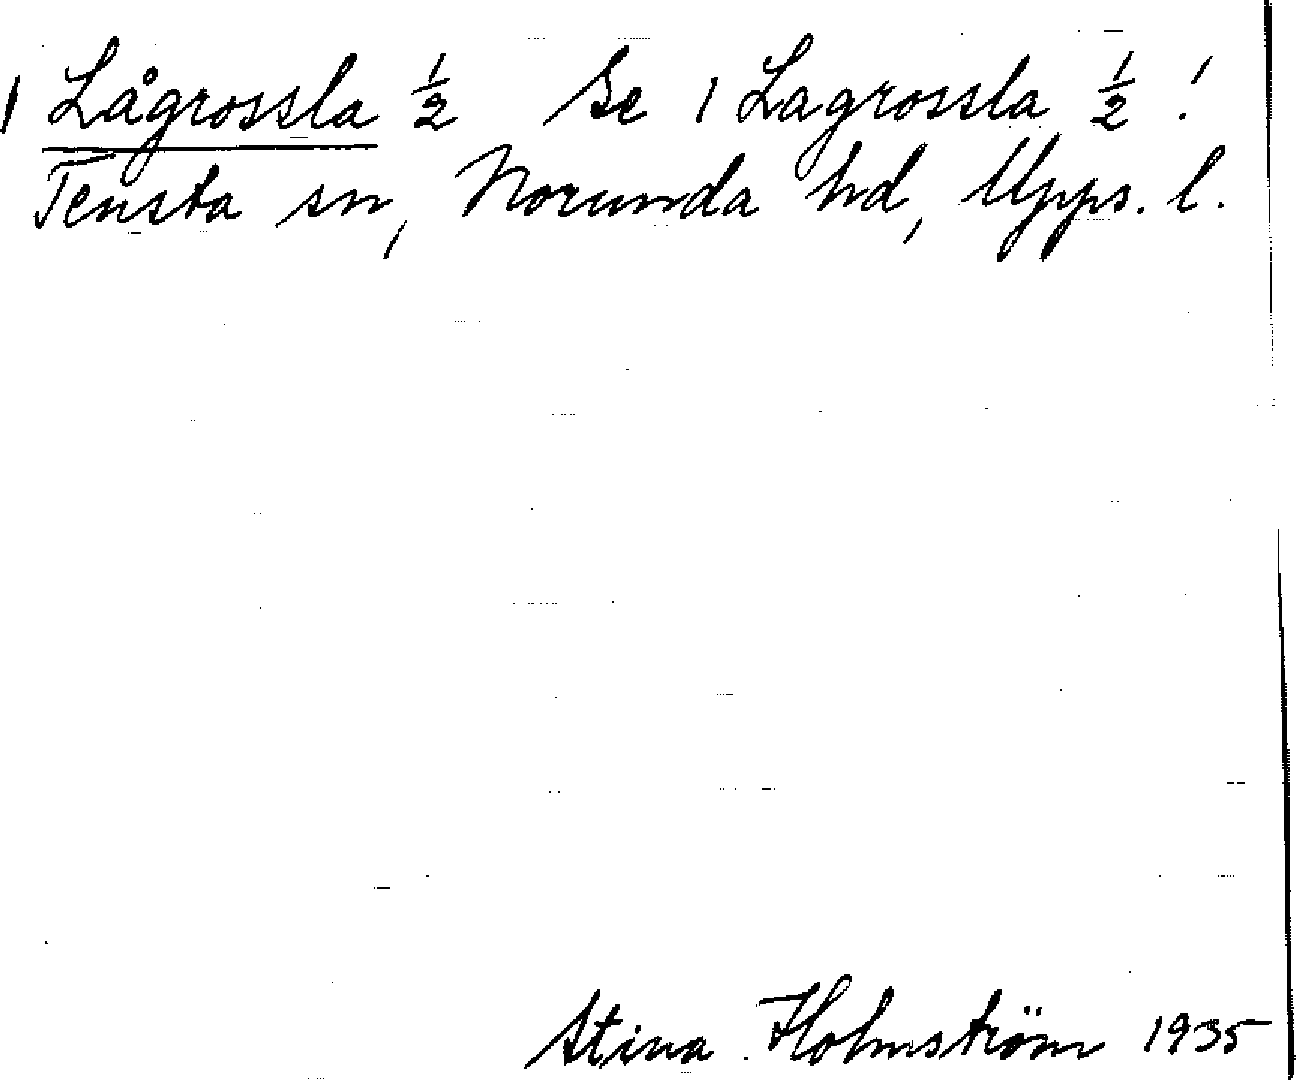 1 Lågrossla ½ Se 1 Lagrossla ½!
Tensta sn, Norunda hd, Upps. l.
Stina Holmström 1935